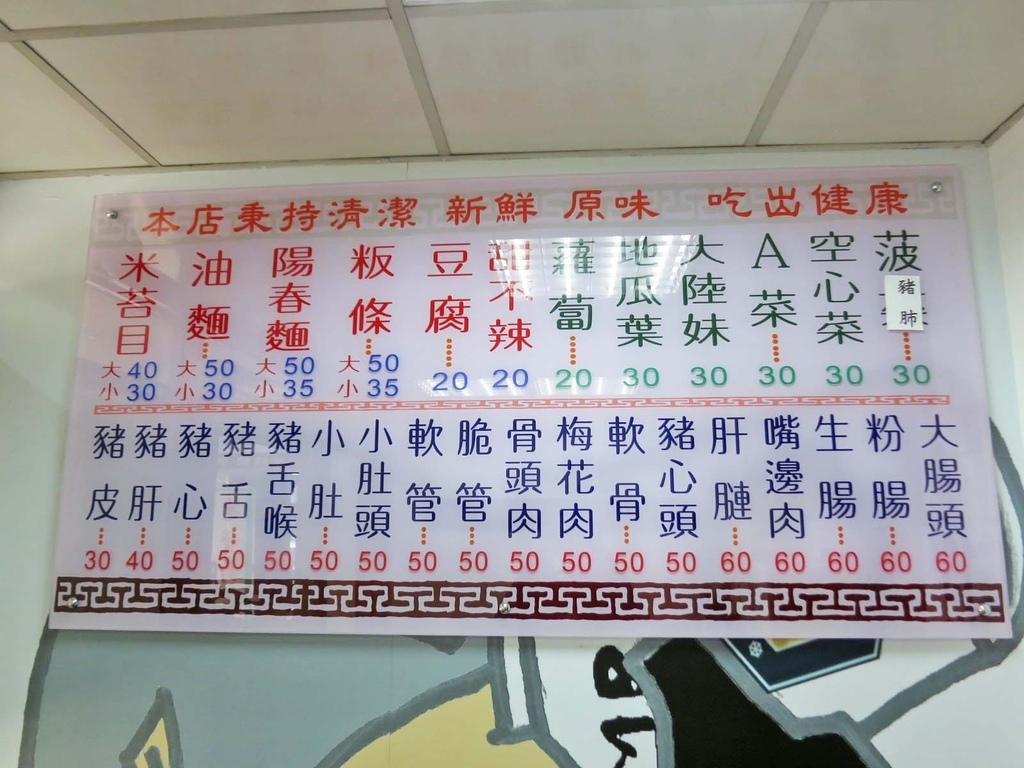 本店秉持清潔 新鮮 原味 吃出健康
米苔目 大40 小30
油麵 大50 小30
陽春麵 大50 小35
粄條 大50 小35
豆腐 20
甜不辣 20
蘿蔔 20
地瓜葉 30
大陸妹 30
A菜 30
空心菜 30
菠 30
豬肺
豬皮 30
豬肝 40
豬心 50
豬舌 50
豬舌喉 50
小肚 50
小肚頭 50
軟管 50
脆管 50
骨頭肉 50
梅花肉 50
軟骨 50
豬心頭 50
肝腱 60
嘴邊肉 60
生腸 60
粉腸 60
大腸頭 60